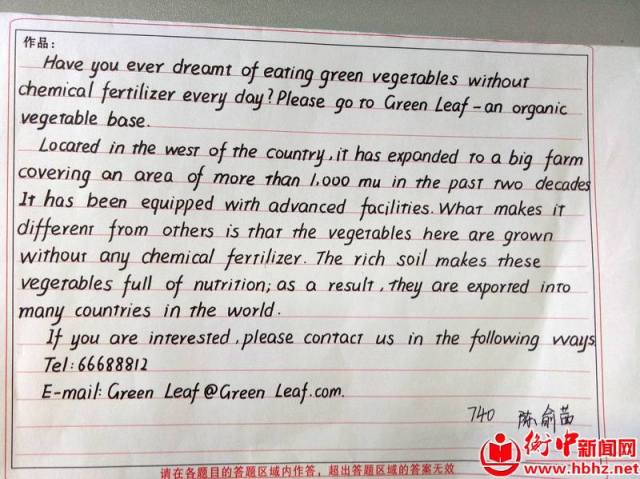 作品:
Have you ever dreamt of eating green vegetables without
chemical fertilizer every day? Please go to Green Leaf - an organic
vegetable base.
Located in the west of the country, it has expanded to a big farm
covering an area of more than 1,000 mu in the past two decades
It has been equipped with advanced facilities. What makes it
different from others is that the vegetables here are grown
without any chemical fertilizer. The rich soil makes these
vegetables full of nutrition; as a result, they are exported into
many countries in the world.
If you are interested, please contact us in the following ways
Tel: 66688812
E-mail: Green Leaf @ Green Leaf.com.
740 陈俞茜
衡中新闻网
www.hbhz.net
请在各题目的答题区域内作答，超出答题区域的答案无效